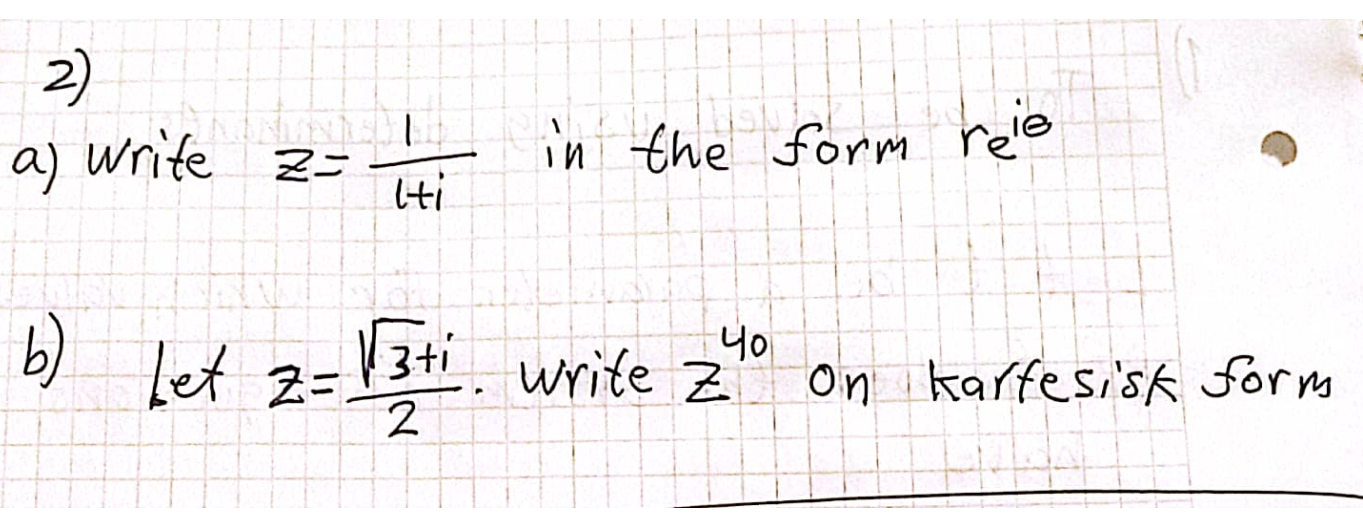 2)
a) write z = 1/(1+i) in the form re^{iθ}
b) Let z = (√3+i)/2. write z^{40} on kartesisk form